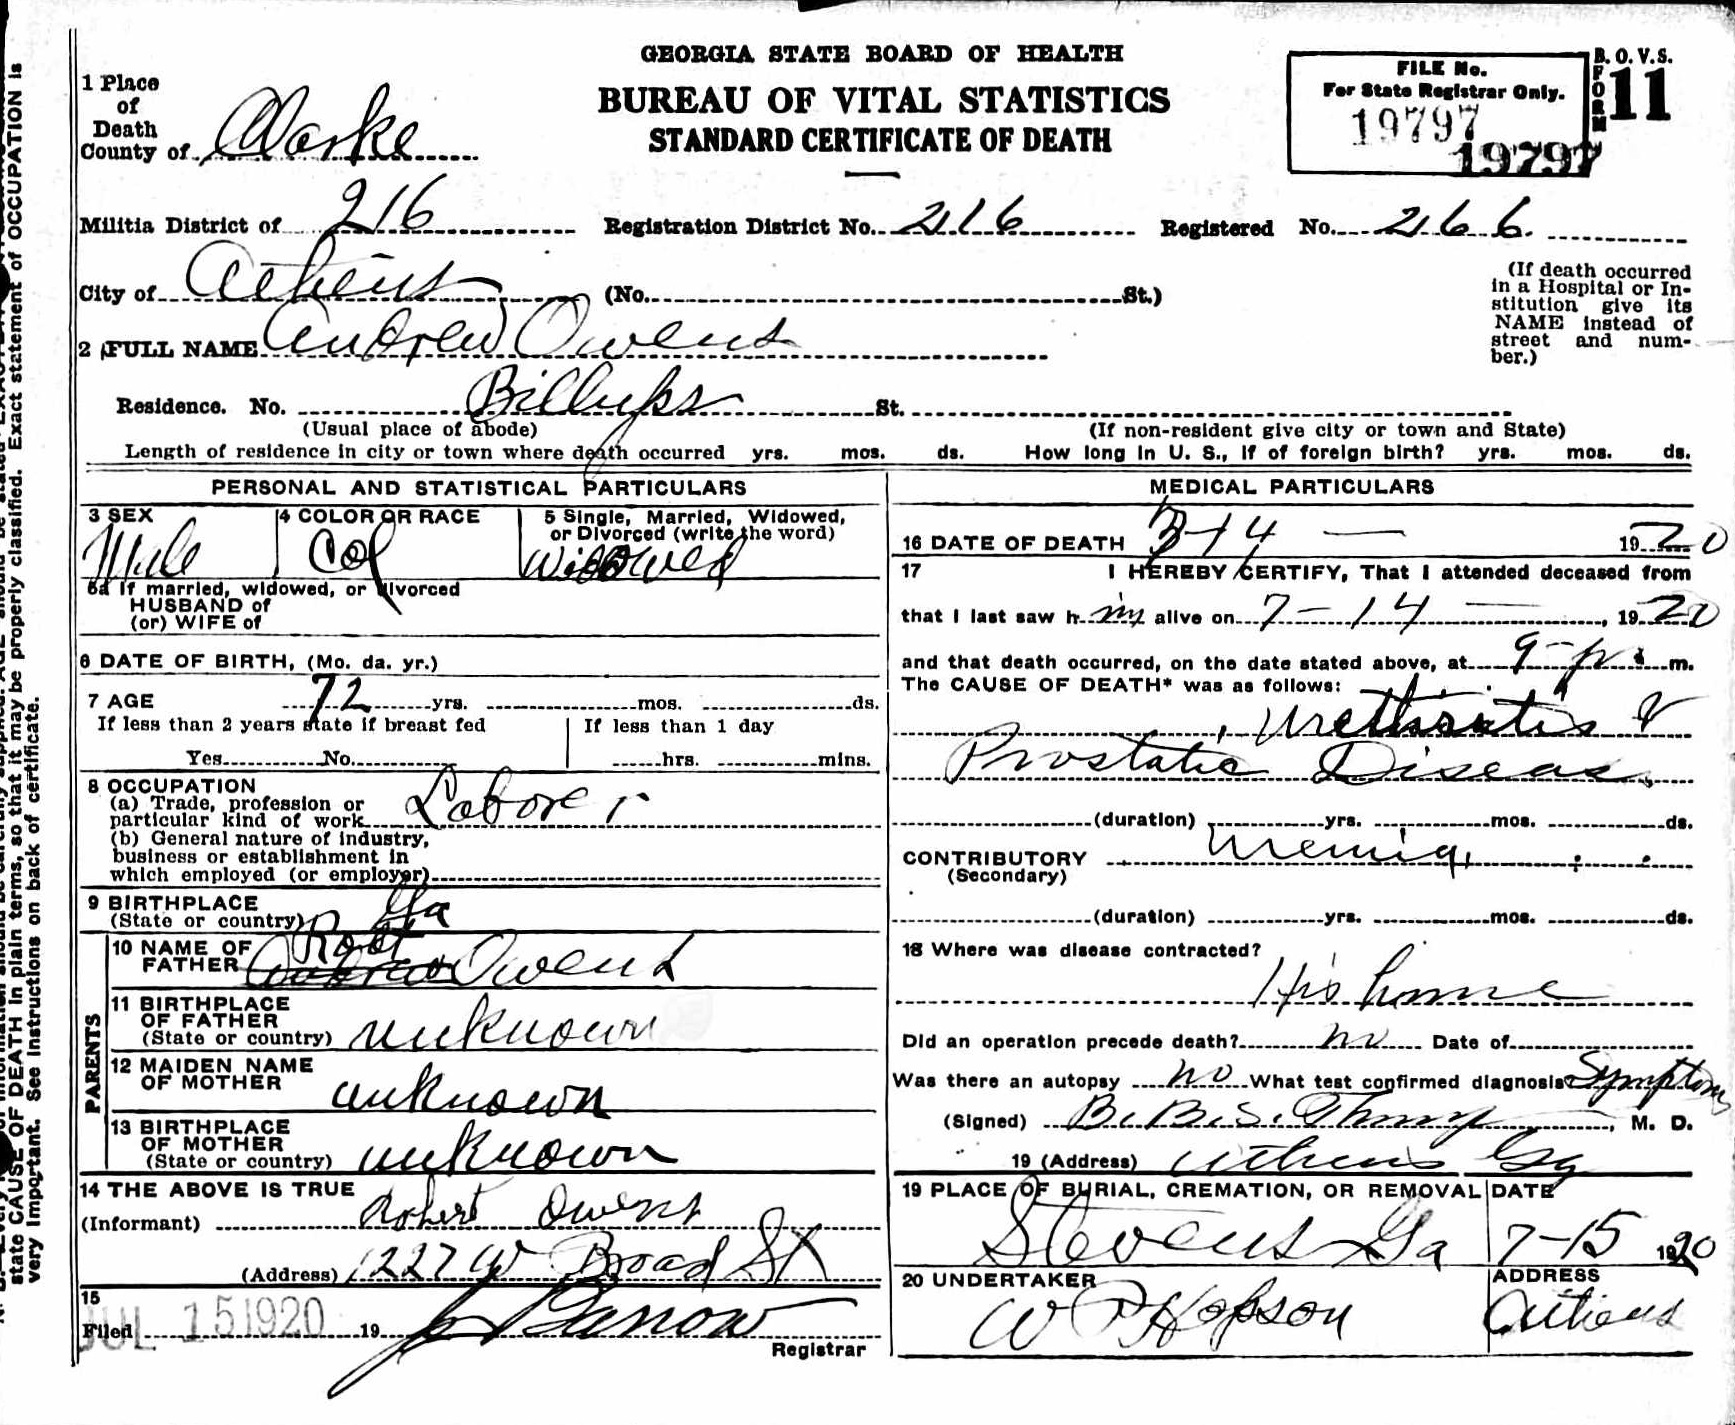 GEORGIA STATE BOARD OF HEALTH
BUREAU OF VITAL STATISTICS
STANDARD CERTIFICATE OF DEATH
FILE No.
For State Registrar Only.
19797
19797
B. O. V. S.
FORM 11
1 Place
of
Death
County of Clarke
Militia District of 216 Registration District No. 216 Registered No. 266.
City of Athens (No. St.)
(If death occurred
in a Hospital or In-
stitution give its
NAME instead of
street and num-
ber.)
2 FULL NAME Andrew Owens
Residence. No. Billups St.
(Usual place of abode) (If non-resident give city or town and State)
Length of residence in city or town where death occurred yrs. mos. ds. How long in U. S., if of foreign birth? yrs. mos. ds.
PERSONAL AND STATISTICAL PARTICULARS
3 SEX
Male
4 COLOR OR RACE
Col
5 Single, Married, Widowed,
or Divorced (write the word)
Widowed
5a If married, widowed, or divorced
HUSBAND of
(or) WIFE of
6 DATE OF BIRTH, (Mo. da. yr.)
7 AGE 72 yrs. mos. ds.
If less than 2 years state if breast fed If less than 1 day
Yes No. hrs. mins.
8 OCCUPATION
(a) Trade, profession or
particular kind of work Laborer
(b) General nature of industry,
business or establishment in
which employed (or employer)
9 BIRTHPLACE
(State or country) Ga
PARENTS
10 NAME OF
FATHER Andrew Robt Owens
11 BIRTHPLACE
OF FATHER
(State or country) unknown
12 MAIDEN NAME
OF MOTHER unknown
13 BIRTHPLACE
OF MOTHER
(State or country) unknown
14 THE ABOVE IS TRUE
(Informant) Robert Owens
(Address) 1227 W Broad St
15
Filed JUL 15 1920 19
Barrow
Registrar
MEDICAL PARTICULARS
16 DATE OF DEATH 14 — 1920
17 I HEREBY CERTIFY, That I attended deceased from
that I last saw h im alive on 7 - 14 —, 1920
and that death occurred, on the date stated above, at 9 - p. m.
The CAUSE OF DEATH* was as follows:
Urethritis &
Prostatic Disease
(duration) yrs. mos. ds.
CONTRIBUTORY Uremia
(Secondary)
(duration) yrs. mos. ds.
18 Where was disease contracted?
His home
Did an operation precede death? no Date of
Was there an autopsy no What test confirmed diagnosis Symptoms
(Signed) B. B. S. , M. D.
19 (Address) Athens Ga
19 PLACE OF BURIAL, CREMATION, OR REMOVAL
Stevens Ga
DATE
7-15 1920
20 UNDERTAKER
W P Hopson
ADDRESS
Athens
state CAUSE OF DEATH in plain terms, so that it may be properly classified. Exact statement of OCCUPATION is
very important. See instructions on back of certificate.